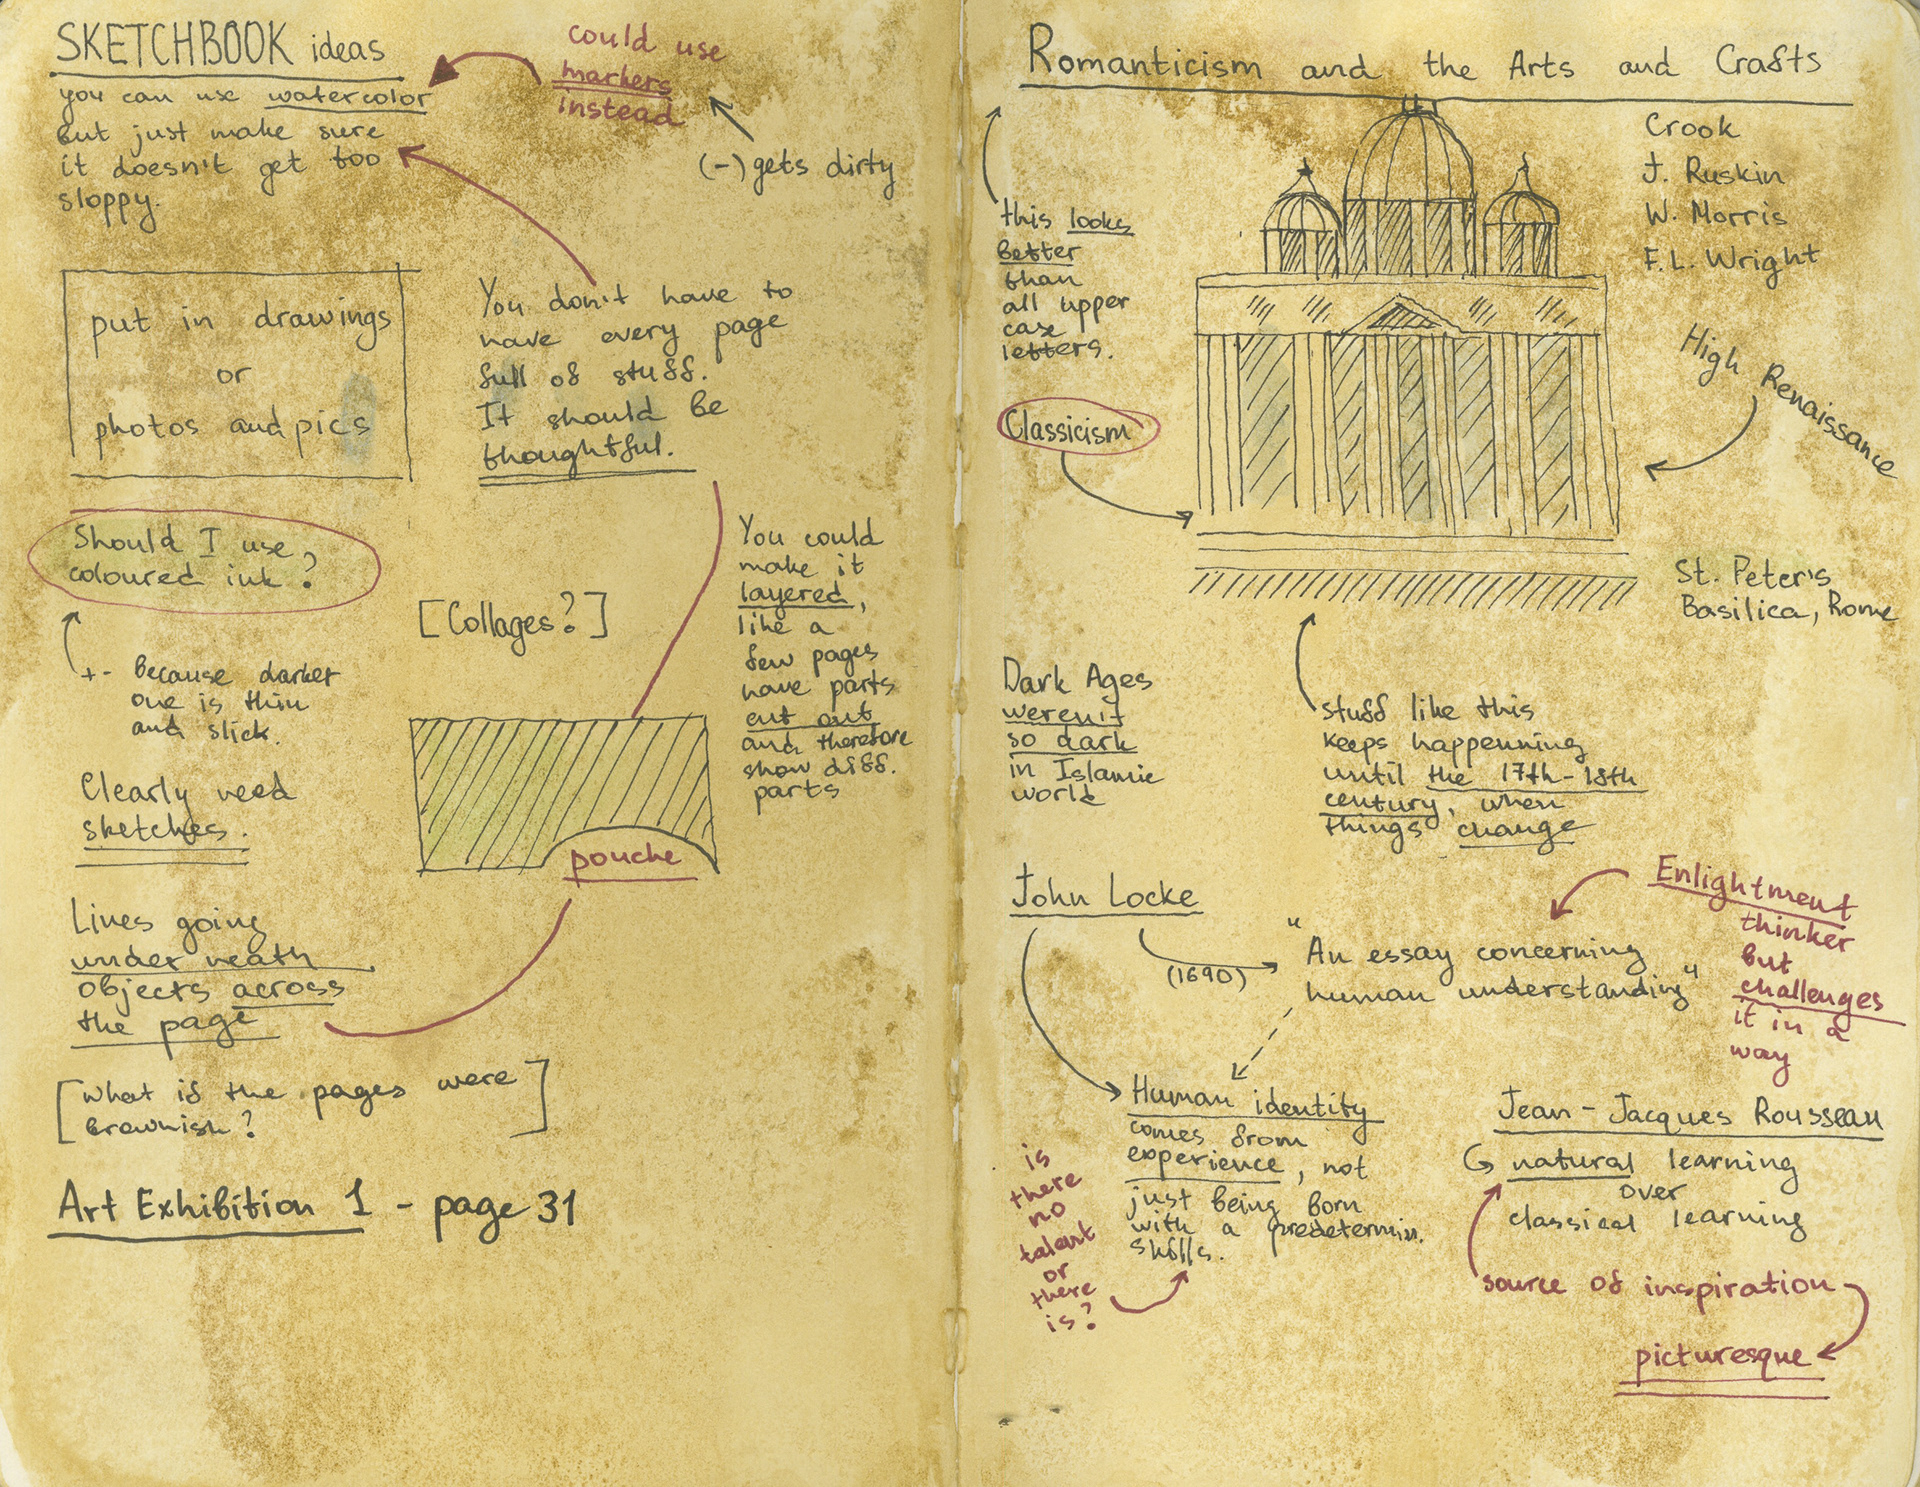 SKETCHBOOK ideas
you can use watercolor
but just make sure
it doesn't get too
sloppy.
could use
markers
instead
(-) gets dirty
put in drawings
or
photos and pics
You don't have to
have every page
full of stuff.
It should be
thoughtful.
Should I use
coloured ink?
+- Because darker
one is thin
and slick.
[Collages?]
You could
make it
layered,
like a
few pages
have parts
cut out
and therefore
show diff.
parts
Clearly need
sketches.
pouche
Lines going
under neath
objects across
the page
[What if the pages were
brownish?]
Art Exhibition 1 - page 31
Romanticism and the Arts and Crafts
Crook
J. Ruskin
W. Morris
F.L. Wright
this looks
better
than
all upper
case
letters.
High Renaissance
Classicism
St. Peter's
Basilica, Rome
Dark Ages
weren't
so dark
in Islamic
world
stuff like this
keeps happenning
until the 17th-18th
century, when
things change
John Locke
(1690)
"An essay concerning
human understanding"
Enlightment
thinker
but
challenges
it in a
way
Human identity
comes from
experience, not
just being born
with a predetermin.
skills.
is
there
no
talent
or
there
is?
Jean-Jacques Rousseau
natural learning
over
classical learning
source of inspiration
picturesque